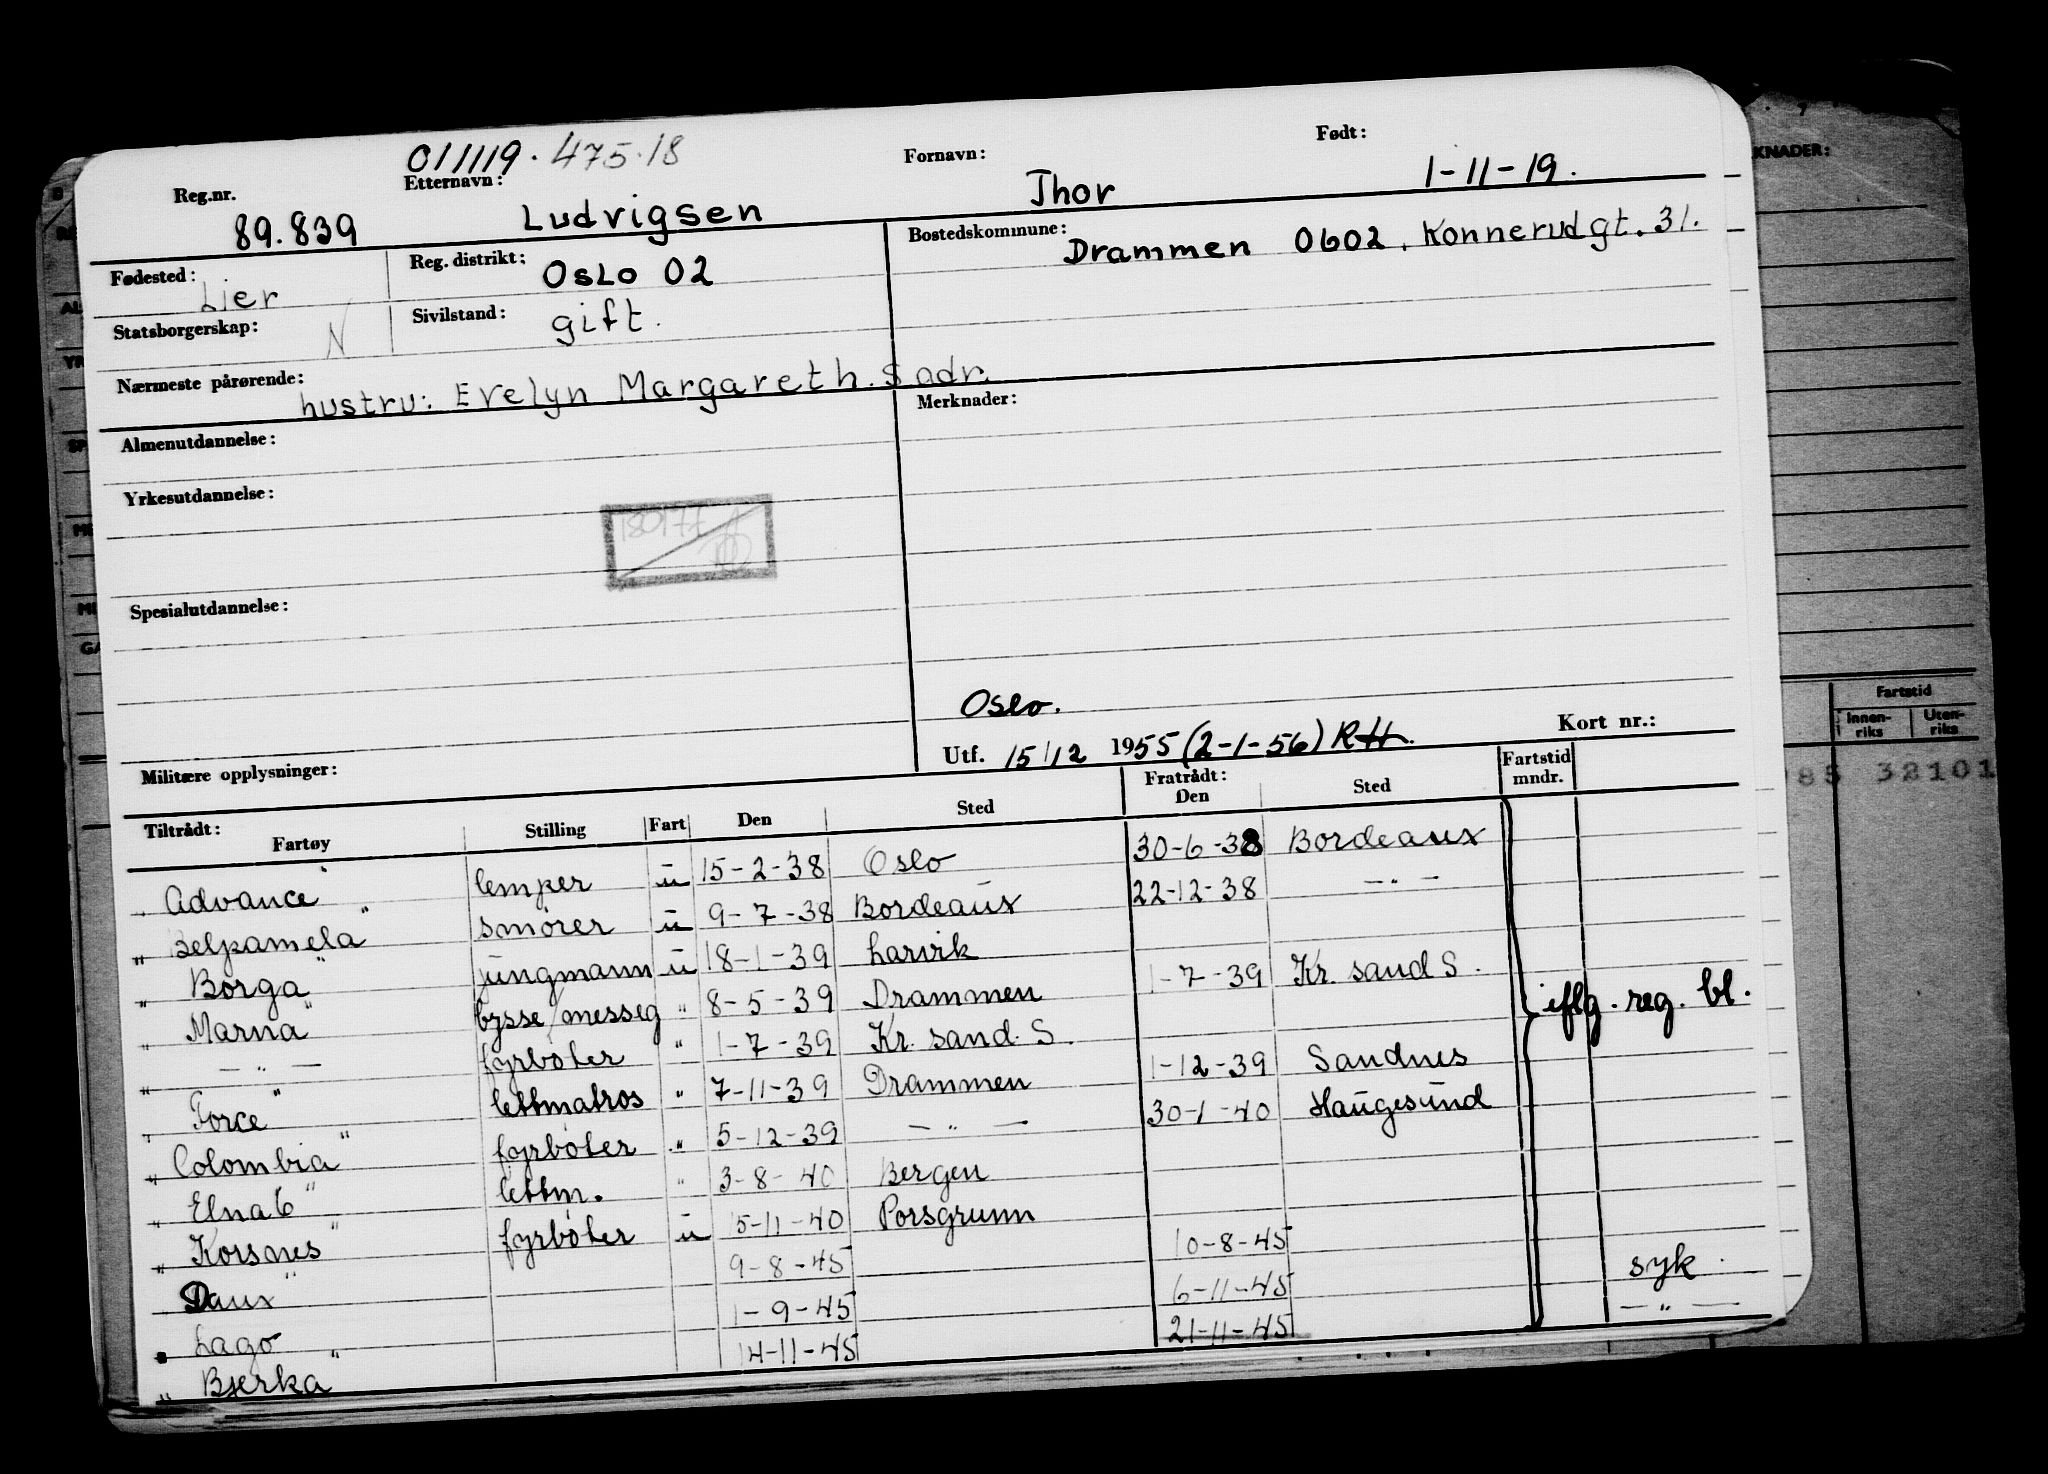 011119. 475.18
Reg.nr. 89.839 Etternavn: Ludvigsen Fornavn: Thor Født: 1-11-19.
Fødested: Lier Reg. distrikt: Oslo 02 Bostedskommune: Drammen 0602. Konnerudgt. 31.
Statsborgerskap: N Sivilstand: gift.
Nærmeste pårørende: hustru: Evelyn Margareth. S adr.
Almenutdannelse: Merknader:
Yrkesutdannelse:
180177
Spesialutdannelse:
Oslo.
Utf. 15/12 1955 (2-1-56) RH. Kort nr.:
Militære opplysninger:
Tiltrådt: Fratrådt: Fartstid
Fartøy Stilling Fart Den Sted Den Sted mndr.
" Advance" lemper u 15-2-38 Oslo 30-6-38 Bordeaux
" Belpamela" smører u 9-7-38 Bordeaux 22-12-38 — " —
" Borga" jungmann u 18-1-39 Larvik
" Marna" bysse/messeg " 8-5-39 Drammen 1-7-39 Kr. sand S.
" — " — fyrbøter " 1-7-39 Kr. sand. S.
" Force" lettmatros " 7-11-39 Drammen 1-12-39 Sandnes
" Colombia" fyrbøter " 5-12-39 — " — 30-1-40 Haugesund
" Elna E" lettm. " 3-8-40 Bergen
" Korsnes" fyrbøter u 15-11-40 Porsgrunn
Daux" 9-8-45 10-8-45
" Lago 1-9-45 6-11-45 syk
" Bjerka" 14-11-45 21-11-45 — " —
iflg. reg. bl.
KNADER:
Fartstid
Innen-riks Uten-riks
85 32101